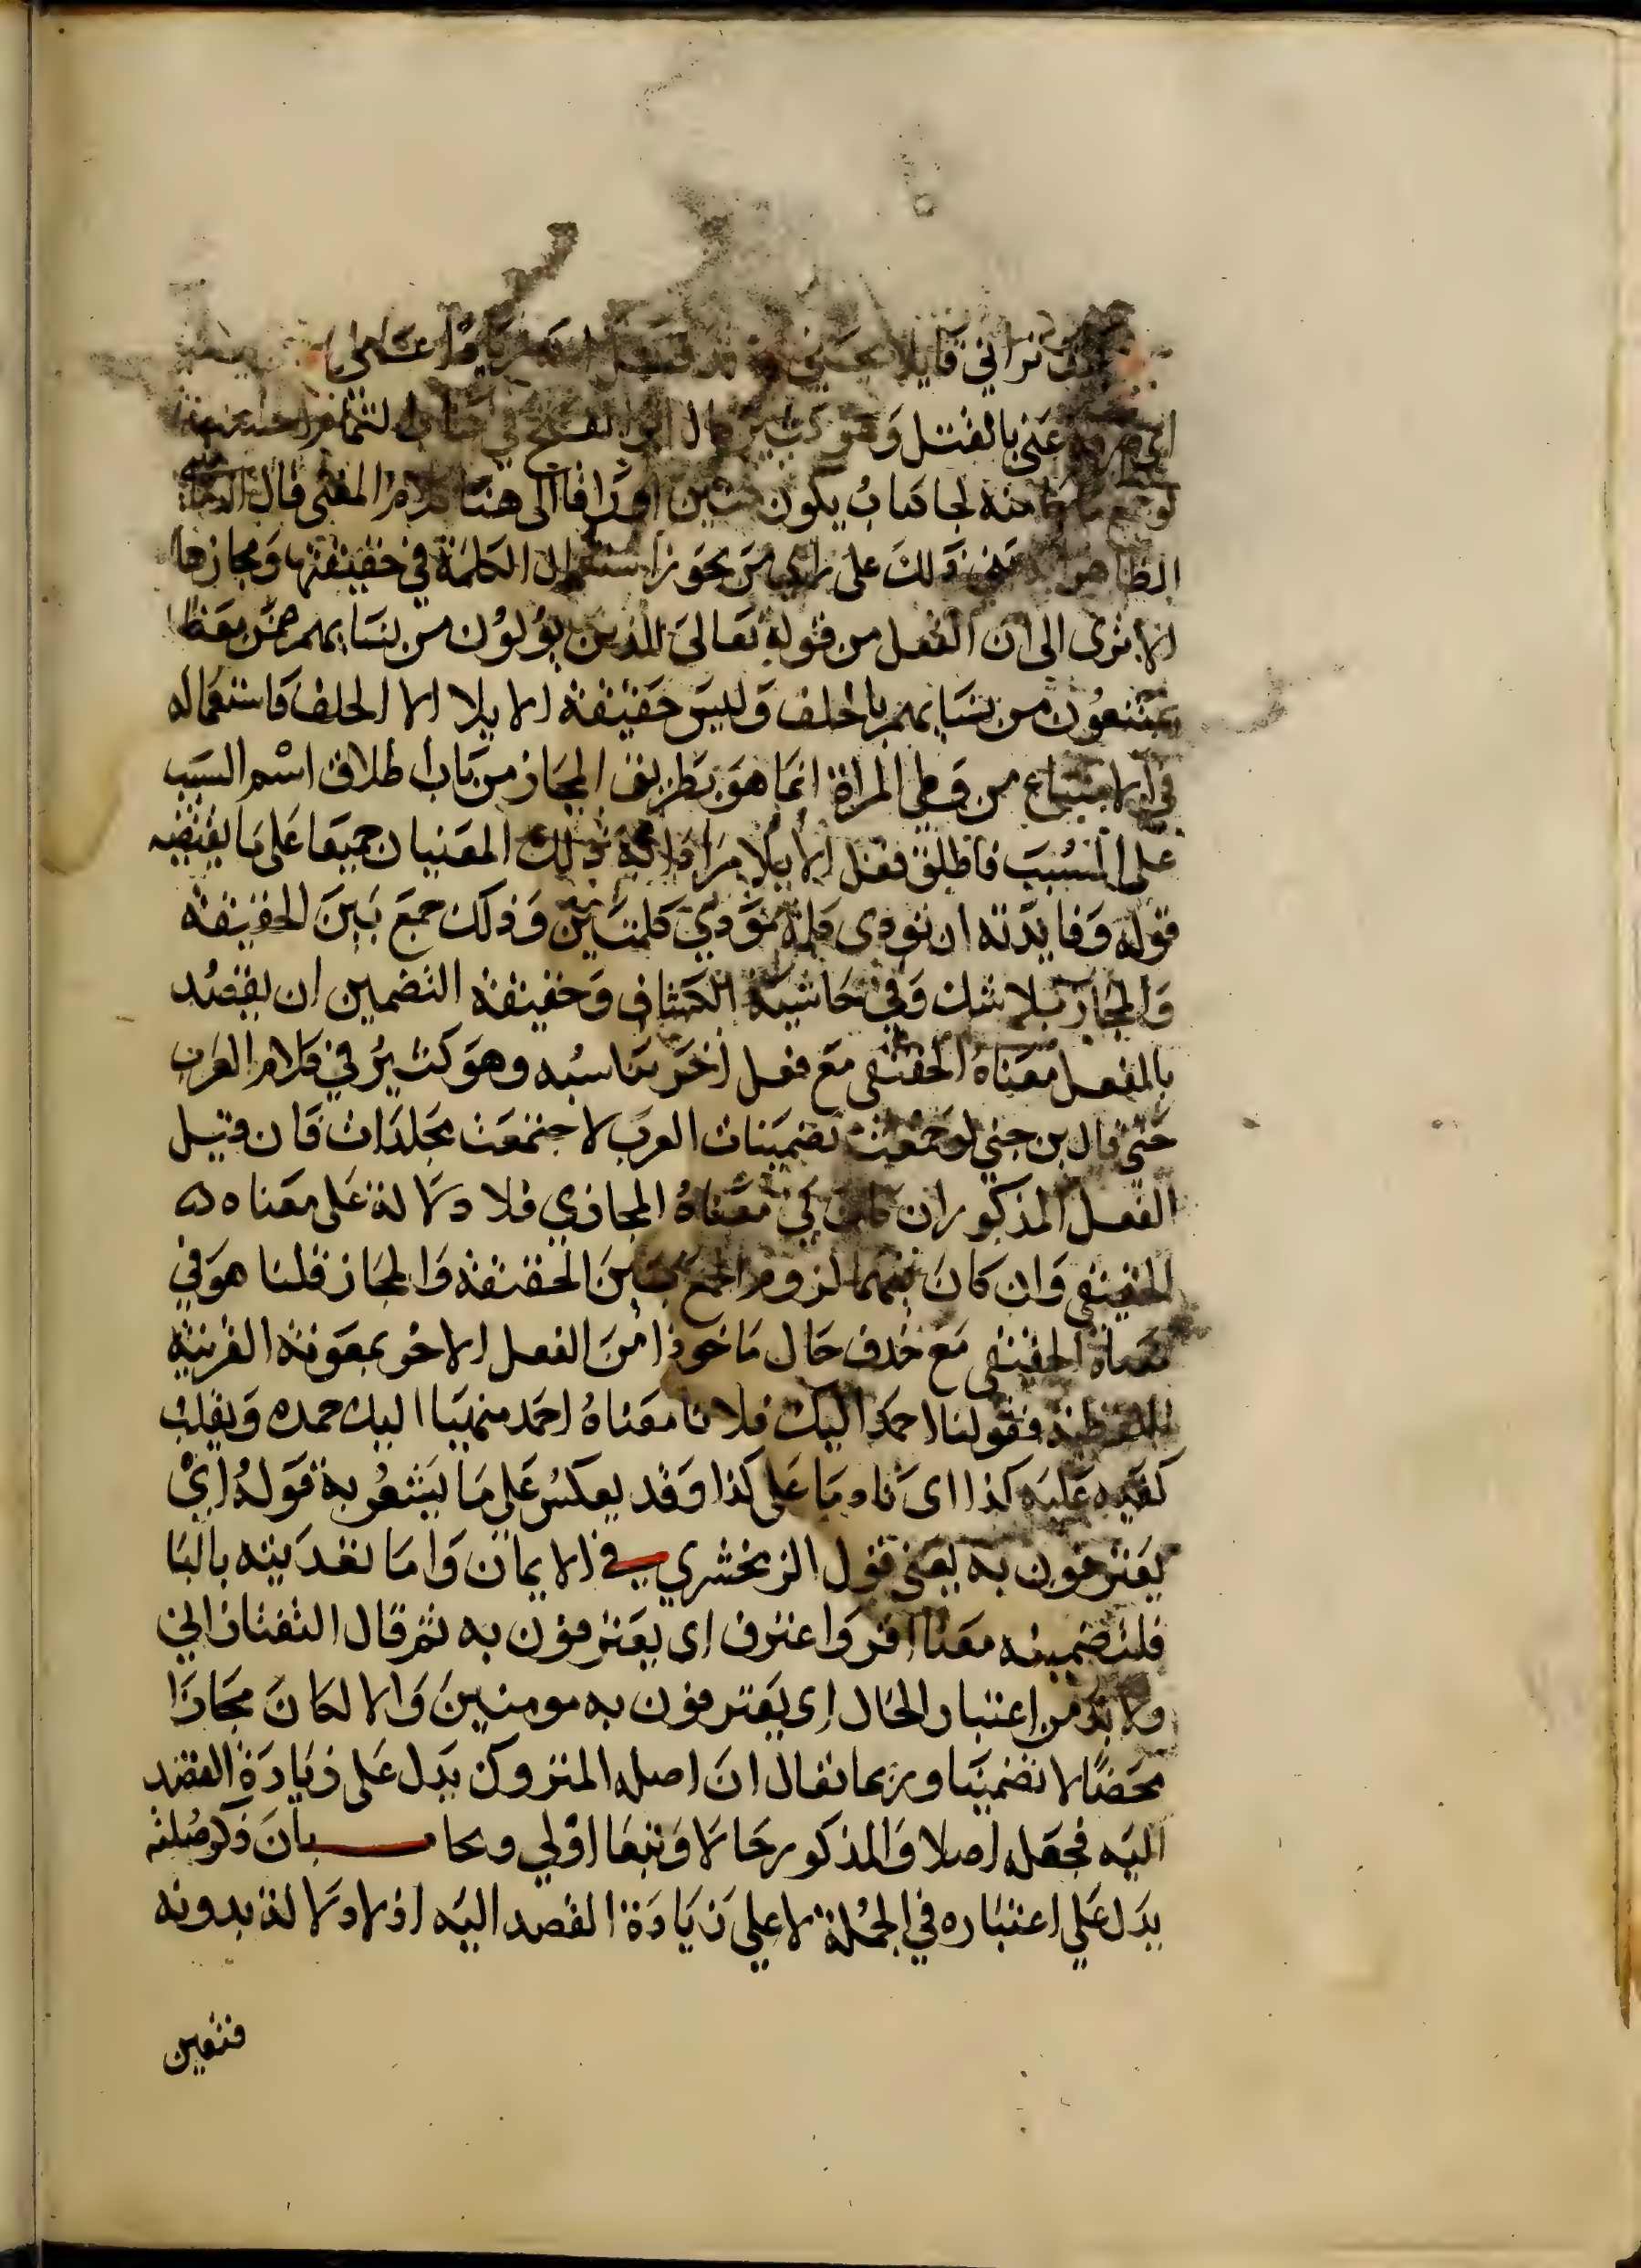 تراني قايلا قد قتل الله زيادا عني
اي صرفه عني بالقتل وهو كثير قال ابو الفتح في كتاب التمام احسب
لو جمع ما جا منه لجا كتاب يكون مئين اوراقا الى هنا كلام المغني قال
الظاهر على راي من يجوز استعمال الكلمة في حقيقتها ومجازها
الا ترى الى ان الفعل من قوله تعالى للذين يولون من نسايهم ضمن معنى
يمتنعون من نسايهم بالحلف وليس حقيقة الايلا الا الحلف فاستعماله
في الامتناع من وطي المراة انما هو بطريق المجاز من باب اطلاق اسم السبب
على المسبب فاطلق فعل الايلا مرادا به ذلك المعنيان جميعا على ما يقتضيه
قوله وفايدته ان تودي كلمة مودي كلمتين وذلك جمع بين الحقيقة
والمجاز بلا شك وفي حاشية الكشاف وحقيقة التضمين ان يقصد
بالفعل معناه الحقيقي مع فعل اخر يناسبه وهو كثير في كلام العرب
حتى قال بن جني لو جمعت تضمينات العرب لاجتمعت مجلدات فان قيل
الفعل المذكور ان كان في معناه المجازي فلا دلالة على معناه
الحقيقي وان كان فيهما لزوم الجمع بين الحقيقة والمجاز قلنا هو في
معناه الحقيقي مع حذف حال ماخوذا من الفعل الاخر بمعونة القرينة
اللفظية فقولنا احمد اليك فلانا معناه احمد منهيا اليك حمده ويقلب
كفيه عليه كذا اي نادما على كذا وقد يعكس على ما يشعر به قوله اي
يعترفون به يعني قول الزمخشري في الايمان واما تعديته بالبا
فلتضمينه معنا اقر واعترف اي يعترفون به ثم قال التفتازاني
ولا بد من اعتبار الحال اي يعترفون به مومنين والا لكان مجازا
محضا لا تضمينا وربما تقال ان اصله المتروك يدل على زيادة القصد
اليه فجعله اصلا والمذكور حالا وتبعا اولى ويجاب بان ذكر صلته
يدل على اعتباره في الجملة لا على زيادة القصد اليه اذ لا دلالة بدونه
فتعين